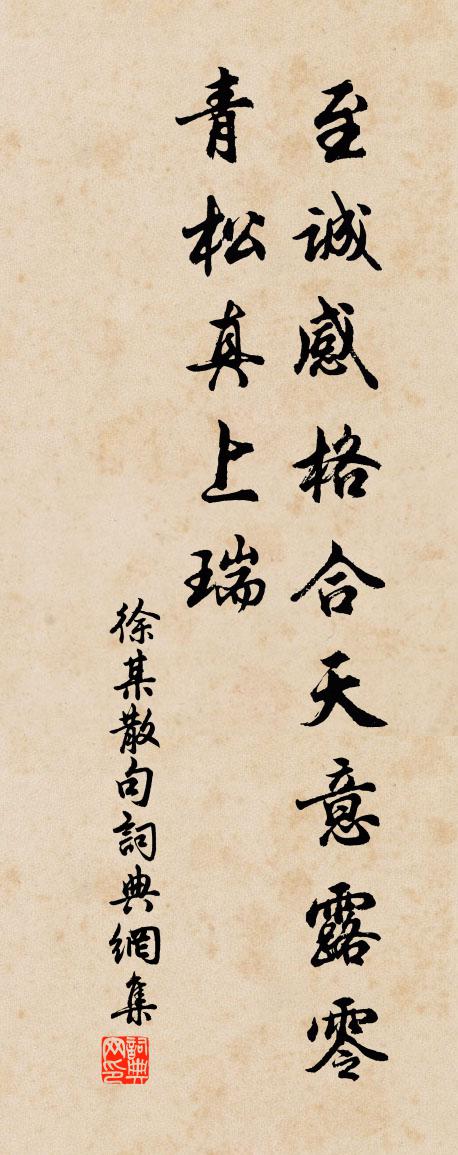 至誠感格合天意露零
青松真上瑞
徐某散句詞典網集
詞典网印